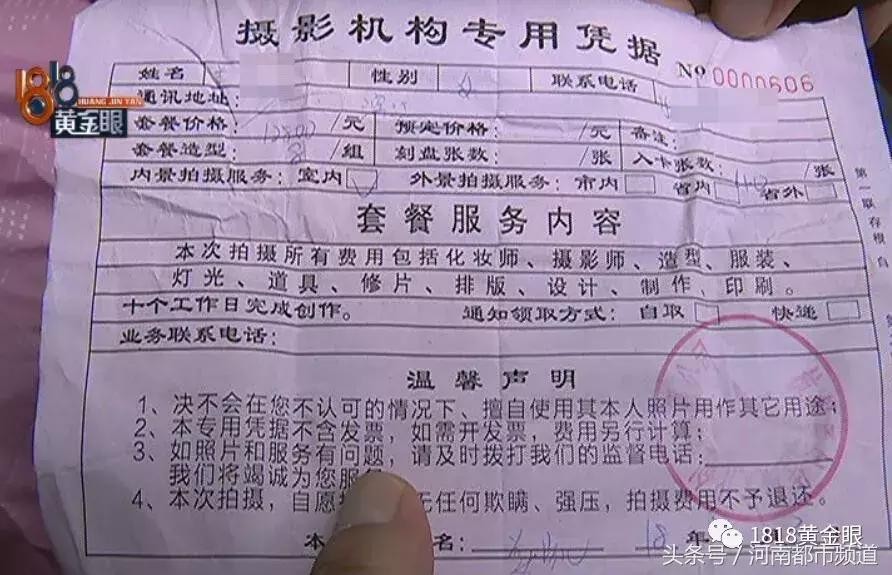 摄影机构专用凭据
No 0000606
姓名 性别 女 联系电话
1818
HUANG JIN YAN
黄金眼
通讯地址:
套餐价格: 元 预定价格: /元 备注:
套餐造型: 组 刻盘张数: /张 入卡张数: /张
内景拍摄服务:室内 外景拍摄服务:市内 省内 省外
套餐服务内容
本次拍摄所有费用包括化妆师、摄影师、造型、服装、
灯光、道具、修片、排版、设计、制作、印刷。
十个工作日完成创作。 通知领取方式:自取 快递
业务联系电话:
温馨声明
1、决不会在您不认可的情况下、擅自使用其本人照片用作其它用途;
2、本专用凭据不含发票,如需开发票,费用另行计算;
3、如照片和服务有问题,请及时拨打我们的监督电话:
我们将竭诚为您服务
4、本次拍摄,自愿 无任何欺瞒、强压,拍摄费用不予退还。
本 名: 18年
第一联存根
1818黄金眼
头条号/河南都市频道